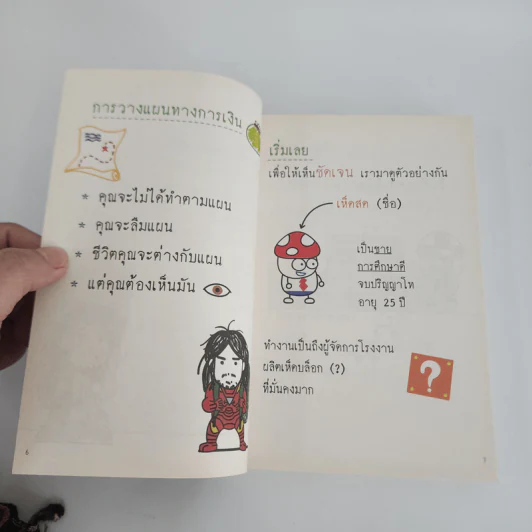 การวางแผนทางการเงิน
* คุณจะไม่ได้ทำตามแผน
* คุณจะลืมแผน
* ชีวิตคุณจะต่างกับแผน
* แต่คุณต้องเห็นมัน
6
เริ่มเลย
เพื่อให้เห็นชัดเจน เรามาดูตัวอย่างกัน
เห็ดสด (ชื่อ)
เป็นชาย
การศึกษาดี
จบปริญญาโท
อายุ 25 ปี
ทำงานเป็นถึงผู้จัดการโรงงาน
ผลิตเห็ดบล็อก (?)
ที่มั่นคงมาก
?
7